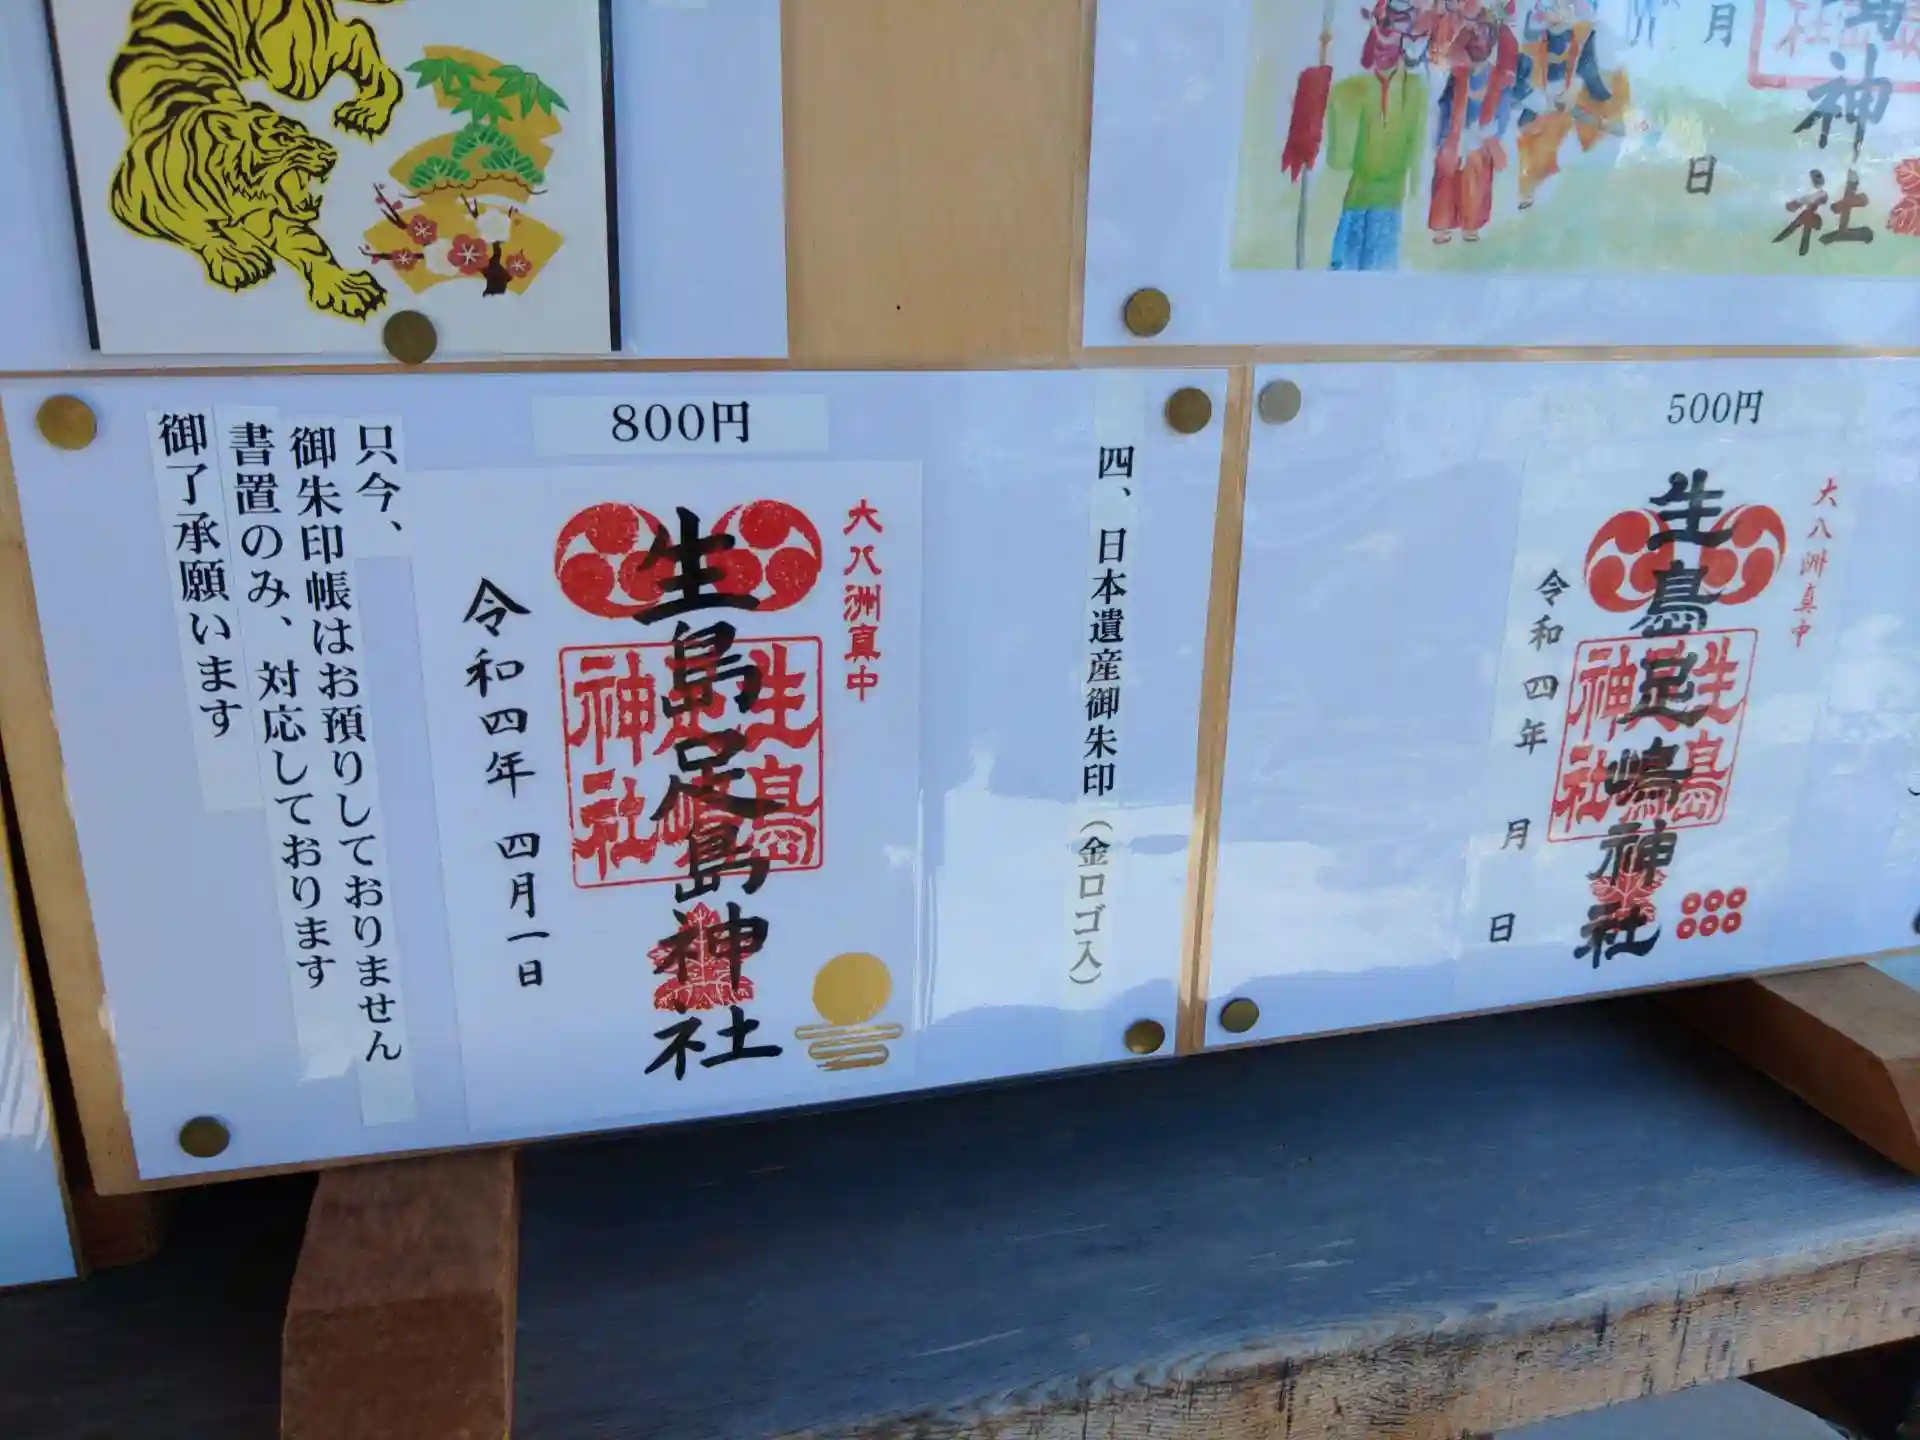 月
日
神社
800円
四、日本遺産御朱印(金ロゴ入)
大八洲真中
生島足島神社
生島足嶋神社
令和四年 四月一日
只今、
御朱印帳はお預りしておりません
書置のみ、対応しております
御了承願います
500円
大八洲真中
生島足嶋神社
生島足嶋神社
令和四年 月 日